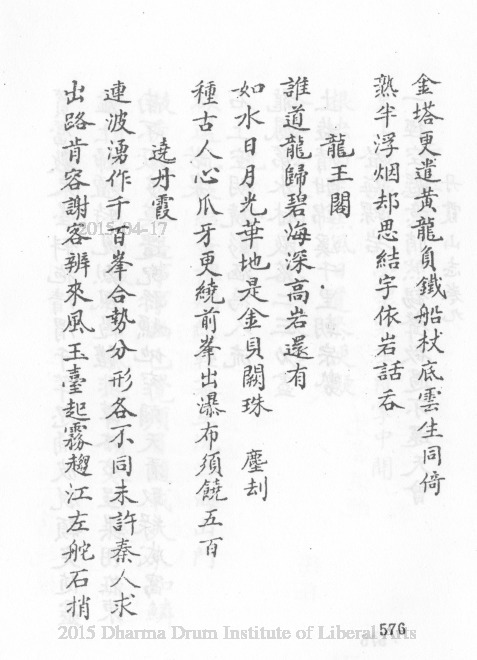 金塔更遣黃龍負鐵船杖底雲生同倚
熟半浮烟却思結宇依岩話吞
龍王閣
誰道龍歸碧海深高岩還有
如水日月光華地是金貝闕珠 塵刦
種古人心爪牙更繞前峯出瀑布須饒五百
遶丹霞
連波湧作千百峯合勢分形各不同未許秦人求
出路肯容謝客辨來風玉臺起霧趨江左舵石捎
576
2015-04-17
2015 Dharma Drum Institute of Liberal Arts